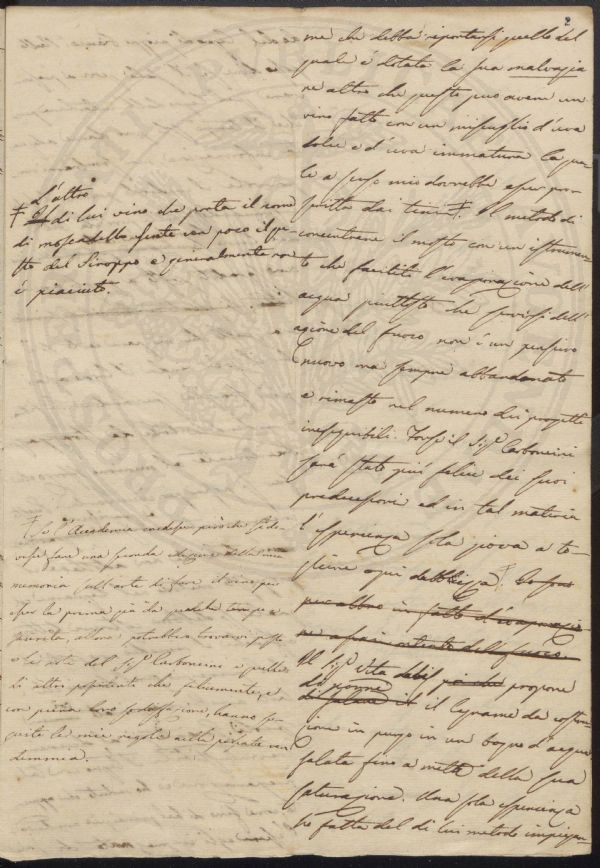 2
me che debba riportarsi quello del
quale è dotata la sua malvasia
ne altro che questo può avere un
vino fatto con un miscuglio d'uva
dolce e d'uva immatura la qua-
le a senso mio dovrebbe esser pro-
scritta dai tini ‡. Il metodo di
concentrare il mosto con un istrumen-
to che faciliti l'evaporazione dell'
acqua piuttosto che servirsi dell'
azione del fuoco non è un pensiero
nuovo ma sempre abbandonato
e rimasto nel numero dei progetti
ineseguibili. Forse il Sig.r Carboncini
sarà stato più felice dei suoi
predecessori ed in tal materia
l'esperienza sola giova a to-
gliere ogni dubbiezza ‡.
in fatto d'evaporazio-
ne
Il Sig.r propone
disporre il legname da costru-
zione in purgo in un bagno d'acqua
salata fino a metà della sua
saturazione. Una sola esperienza
ho fatta del di lui metodo
L'altro
‡ di lui vino che porta il nome
di moscadello sente un poco il gu-
sto del Siroppo e generalmente non
è piaciuto.
‡ Se l'Accademia credesse
una seconda edizione della mia
memoria sull'arte di fare il vino per
esser la prima già da qualche tempo e-
saurita, allora potrebbe trovarvi posto
del Sig.r Carboncini e quelle
di altri possidenti che felicemente, e
con piena loro sodisfazione, hanno se-
guite le mie regole nelle passate ven-
demmie.